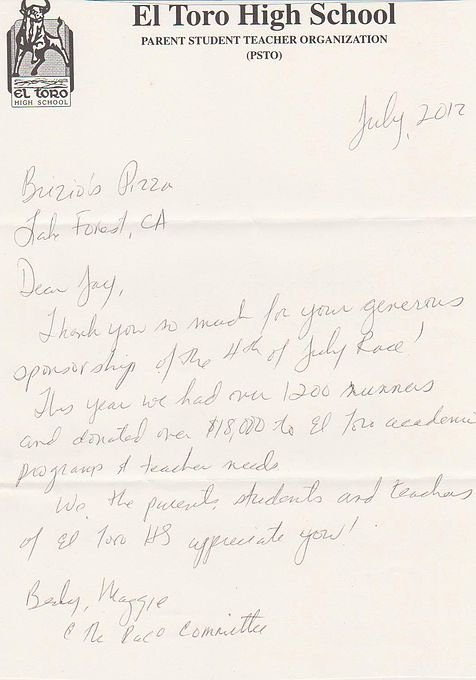 El Toro High School
PARENT STUDENT TEACHER ORGANIZATION
(PSTO)
EL TORO
HIGH SCHOOL
July, 2012
Brizio's Pizza
Lake Forest, CA
Dear Jay,
Thank you so much for your generous
sponsorship of the 4th of July Race!
This year we had over 1200 runners
and donated over $18,000 to El Toro academic
programs & teacher needs.
We, the parents, students and teachers
of El Toro HS appreciate you!
Maggie
& the Committee